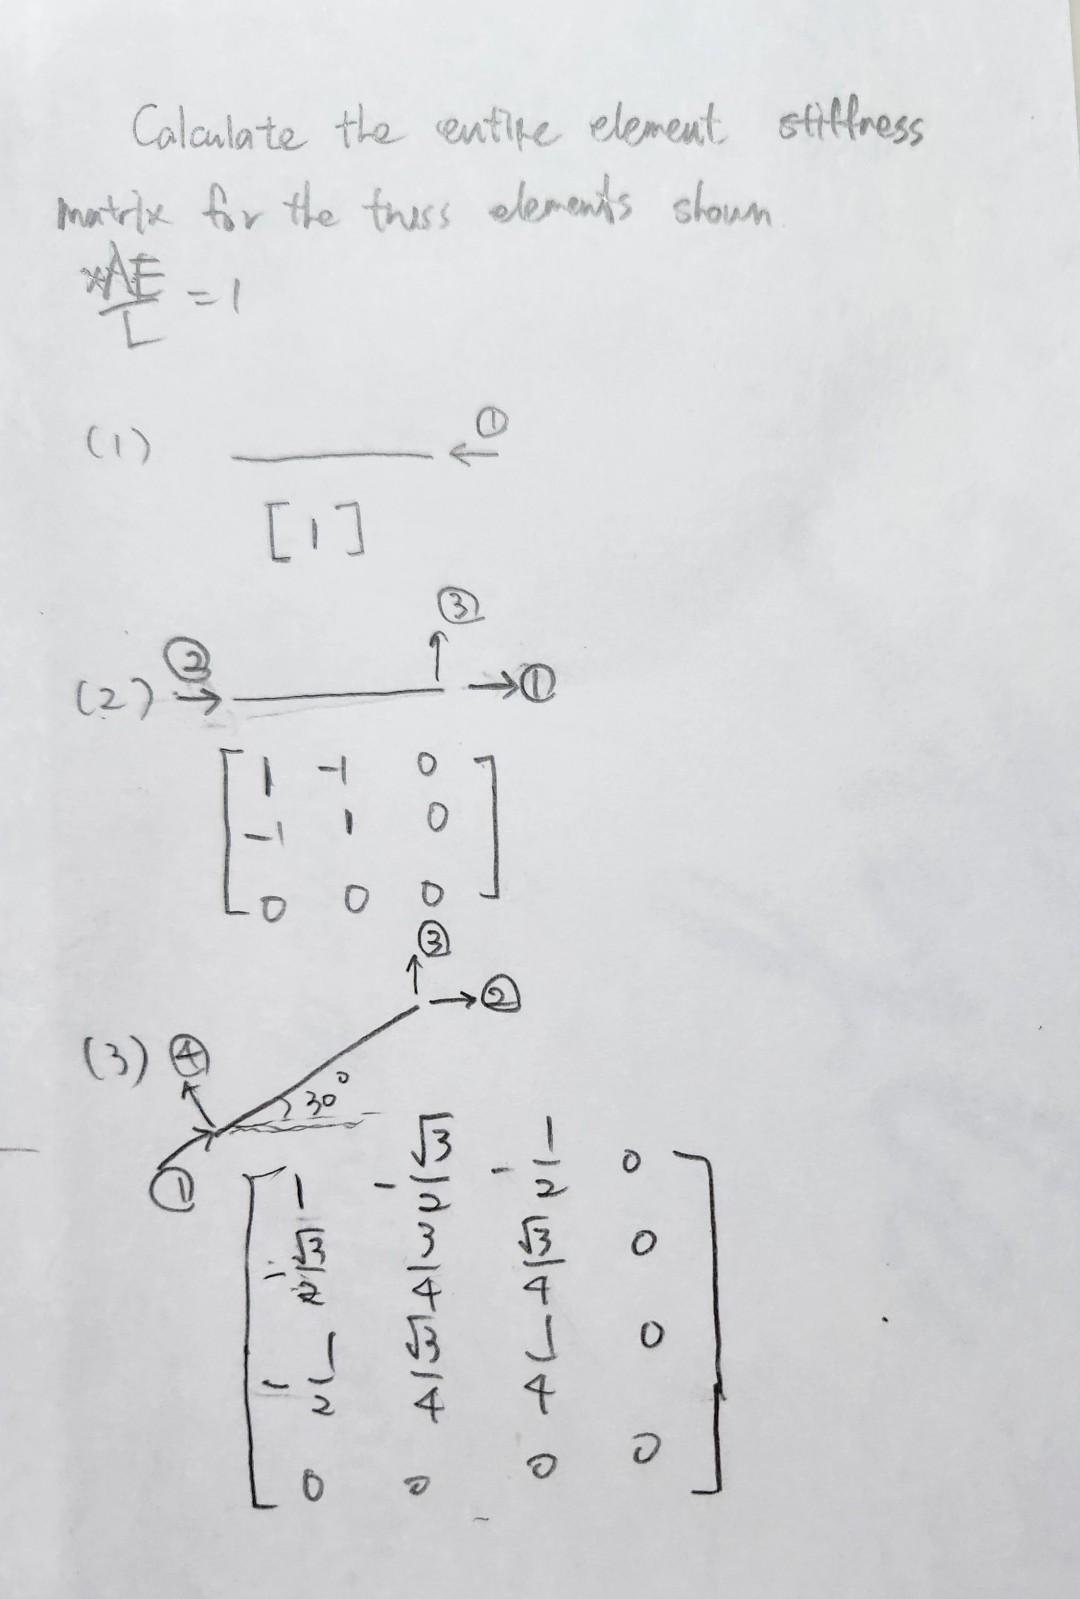 Calculate the entire element stiffness
matrix for the truss elements shown.
*AE/L = 1
(1) ①
[1]
③
(2) ② ①
[1 -1 0
-1 1 0
0 0 0]
③
②
(3) ④
30°
①
[1 -√3/2 -1/2 0
-√3/2 3/4 √3/4 0
-1/2 √3/4 1/4 0
0 0 0 0]